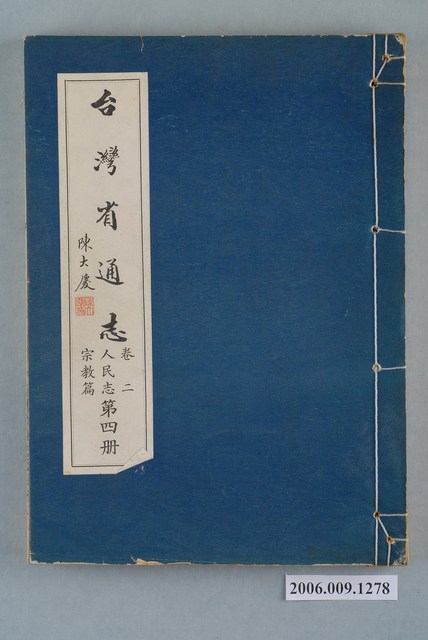 台灣省通志
陳大慶
卷二
人民志
宗教篇
第四册
2006.009.1278